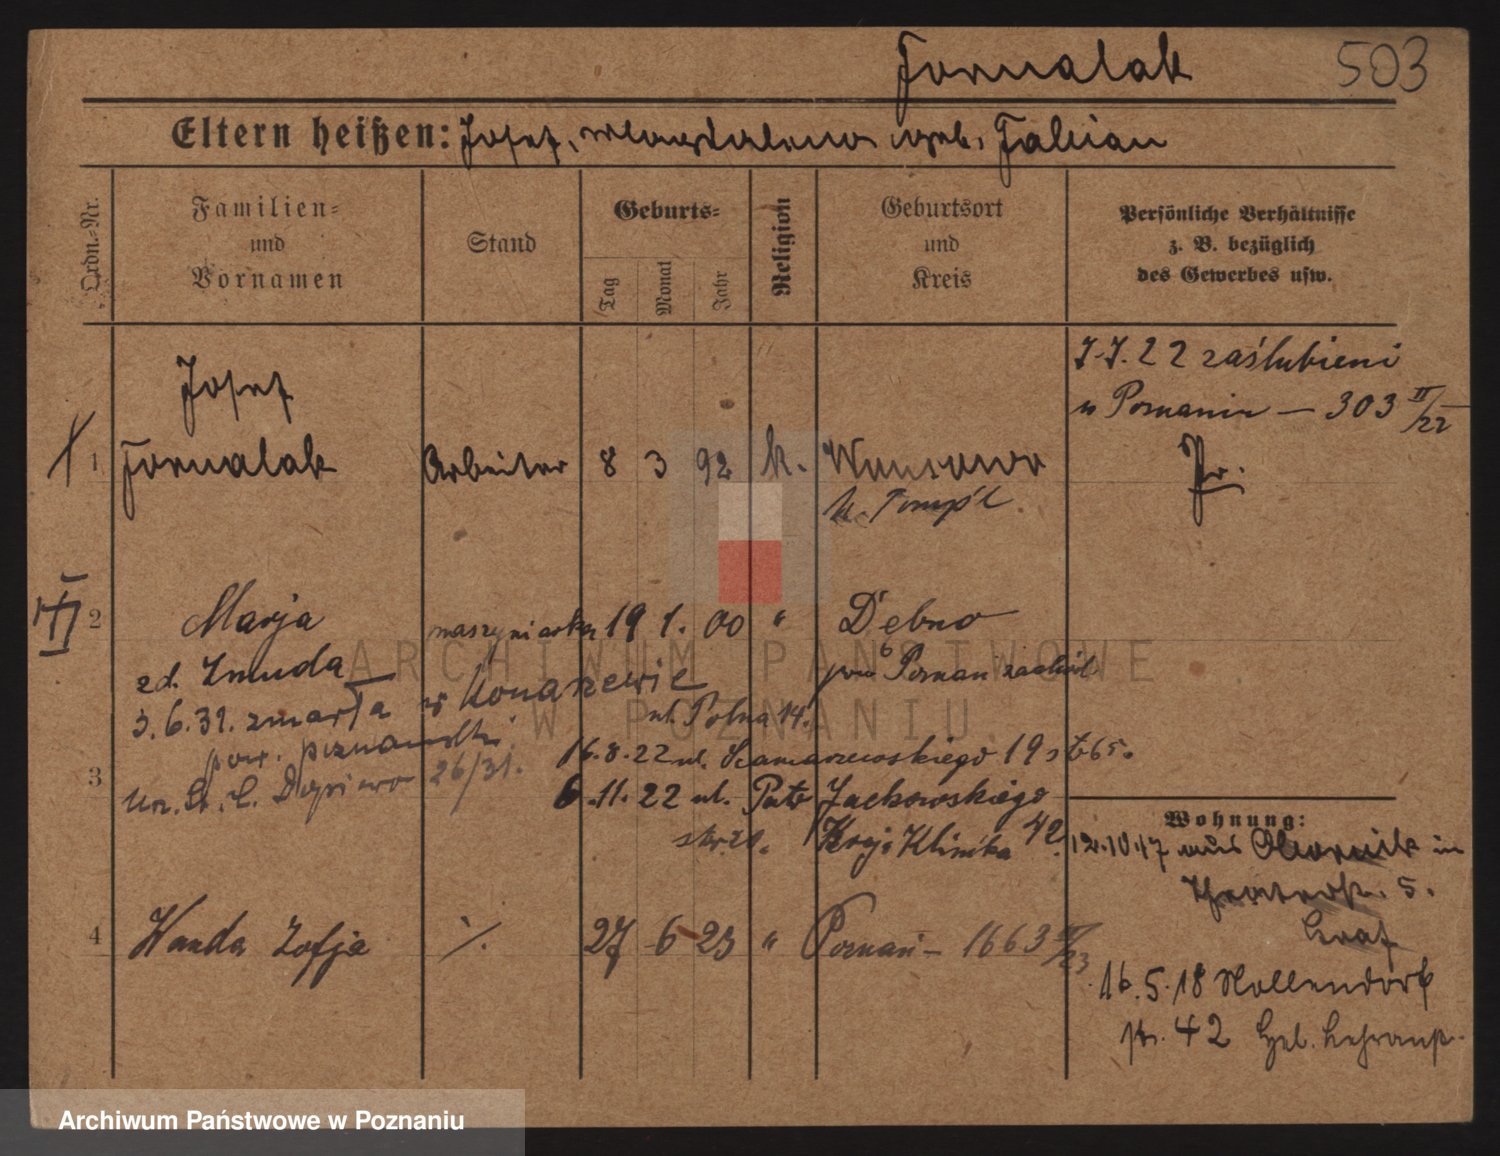 Fornalak 503
Eltern heißen: Josef, Magdalena geb. Fabian
Ordn.-Nr.
Familien-
und
Vornamen
Stand
Geburts-
Tag
Monat
Jahr
Religion
Geburtsort
und
Kreis
Persönliche Verhältnisse
z. B. bezüglich
des Gewerbes usw.
7.7.22 zaślubieni
w Poznaniu — 303 II/22
Pr.
Josef
1 Fornalak Arbeiter 8 3 92 k. Wonsowo
2 Marja maszyniarka 19 1. 00 " Dębno
zd. Żmuda pow Poznań zachód
3.6.31. zmarła w Konarzewie
pow. poznański ul. Polna 14.
16.8.22 ul. Szamarzewskiego 19
3 Dopiewo 26/31.
6.11.22 ul. Patr Jackowskiego
Klinika 42.
Wohnung:
12.10.17 aus Obornik in
Theaterstr. 5.
Graf
4 Wanda Zofja ./. 27 6 23 " Poznań — 1663 II/23
16.5.18 Nollendorf
str. 42
ARCHIWUM PAŃSTWOWE
W POZNANIU
Archiwum Państwowe w Poznaniu